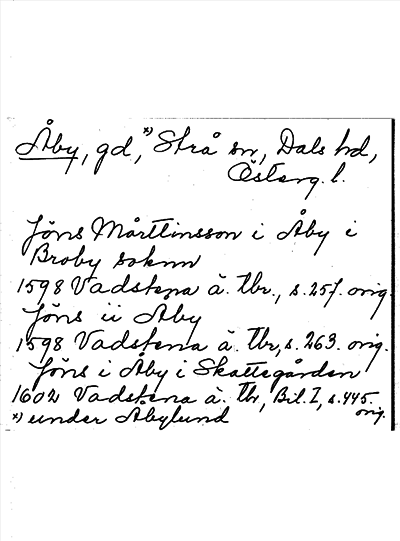 Åby, gd, *) Strå sn, Dals hd,
Österg. l.
Jöns Mårttinsson i Åby i
Broby soknn
1598 Vadstena ä. tbr., s. 257. orig.
Jöns ii Åby
1598 Vadstena ä. tbr, s. 263. orig.
Jöns i Åby i Skattegården
1602 Vadstena ä. tbr, Bil. I, s. 445.
orig.
*) under Åbylund